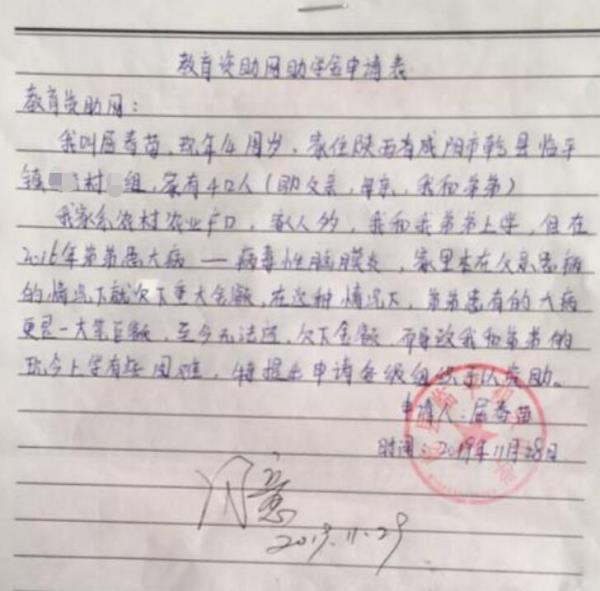 教育资助网助学金申请表
教育资助网：
我叫屈春苗，现年14周岁，家住陕西省咸阳市乾县临平
镇 村 组，家有4口人（即父亲，母亲，我和弟弟）
我家系农村农业户口，家人多，我和我弟弟上学，但在
2016年弟弟患大病——病毒性脑膜炎，家里本在父亲患病
的情况下就欠下重大金额，在这种情况下，弟弟患有的大病
更是一大笔巨额，至今无法还，欠下金额，而导致我和弟弟的
现今上学有些困难，特提出申请各级组织予以资助。
申请人：屈春苗
时间：2019年11月28日
同意
2019.11.29